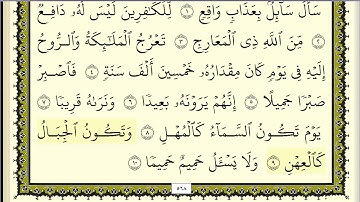 سَأَلَ سَآئِلُۢ بِعَذَابٖ وَاقِعٖ ١ لِّلۡكَٰفِرِينَ لَيۡسَ لَهُۥ دَافِعٞ
٢ مِّنَ ٱللَّهِ ذِي ٱلۡمَعَارِجِ ٣ تَعۡرُجُ ٱلۡمَلَٰٓئِكَةُ وَٱلرُّوحُ
إِلَيۡهِ فِي يَوۡمٖ كَانَ مِقۡدَارُهُۥ خَمۡسِينَ أَلۡفَ سَنَةٖ ٤ فَٱصۡبِرۡ
صَبۡرٗا جَمِيلًا ٥ إِنَّهُمۡ يَرَوۡنَهُۥ بَعِيدٗا ٦ وَنَرَىٰهُ قَرِيبٗا ٧
يَوۡمَ تَكُونُ ٱلسَّمَآءُ كَٱلۡمُهۡلِ ٨ وَتَكُونُ ٱلۡجِبَالُ
كَٱلۡعِهۡنِ ٩ وَلَا يَسۡـَٔلُ حَمِيمٌ حَمِيمٗا ١٠
٥٦٨